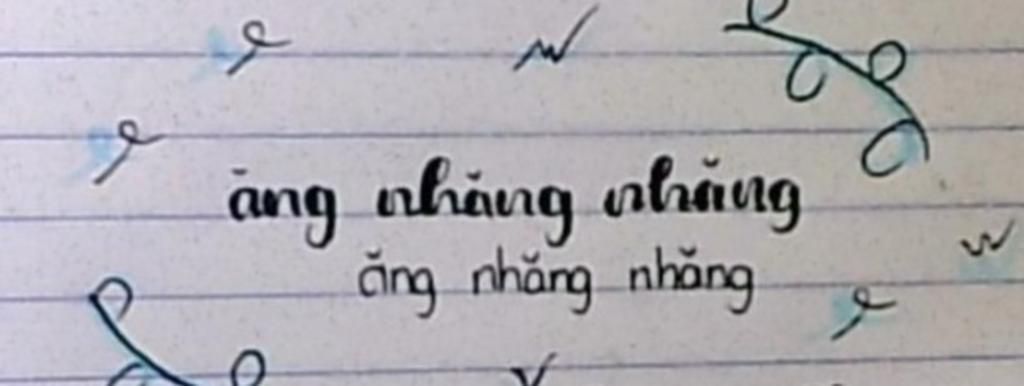 ăng nhăng nhăng
ăng nhăng nhăng